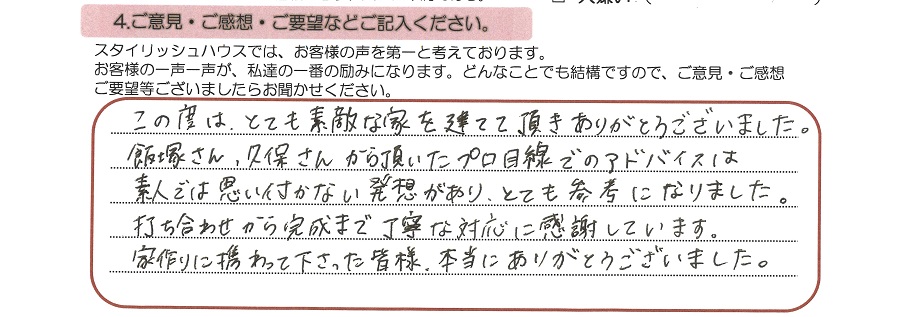 4.ご意見・ご感想・ご要望などご記入ください。
スタイリッシュハウスでは、お客様の声を第一と考えております。
お客様の一声一声が、私達の一番の励みになります。どんなことでも結構ですので、ご意見・ご感想
ご要望等ございましたらお聞かせください。
この度は、とても素敵な家を建てて頂きありがとうございました。
飯塚さん、久保さんから頂いたプロ目線でのアドバイスは
素人では思い付かない発想があり、とても参考になりました。
打ち合わせから完成まで丁寧な対応に感謝しています。
家作りに携わって下さった皆様、本当にありがとうございました。